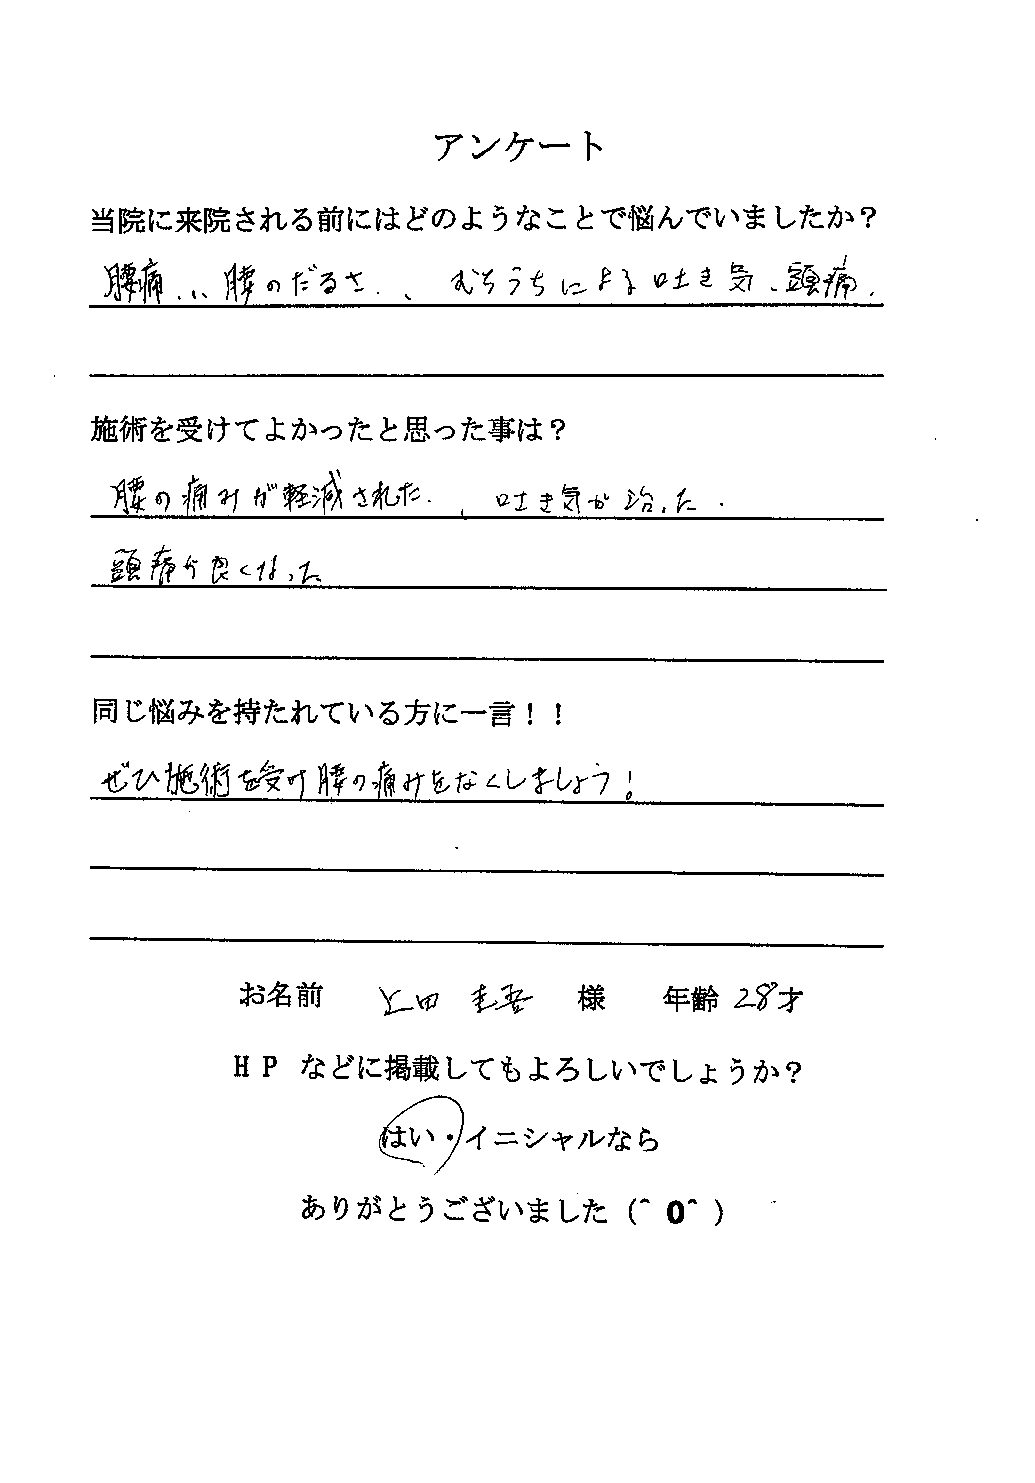 アンケート
当院に来院される前にはどのようなことで悩んでいましたか？
腰痛... 腰のだるさ.、 むちうちによる吐き気、頭痛.
施術を受けてよかったと思った事は？
腰の痛みが軽減された. 、吐き気が治った.
頭痛が良くなった
同じ悩みを持たれている方に一言！！
ぜひ施術を受け腰の痛みをなくしましょう!
お名前 上田 圭吾 様 年齢 28才
ＨＰ などに掲載してもよろしいでしょうか？
はい・イニシャルなら
ありがとうございました（＾ 0＾ ）